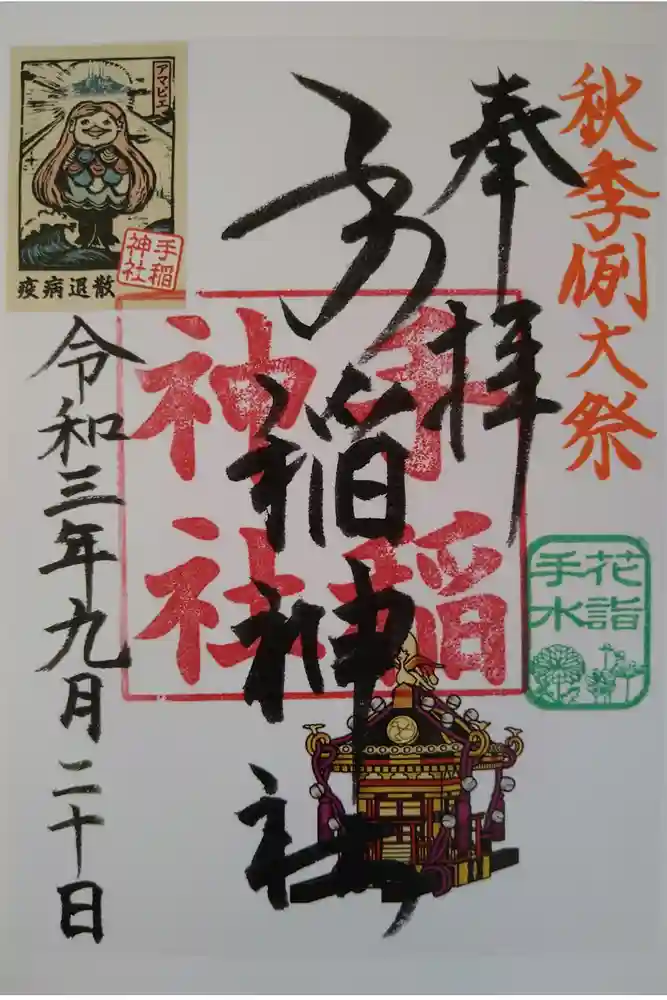 秋季例大祭
奉拝
手稲神社
手稲
神社
花詣
手水
アマビエ
手稲
神社
疫病退散
令和三年九月二十日